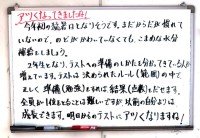 アツくなってきましたね!
今年初の猛暑日となりそうです。まだからだが慣れて
いないので、のどがかわいていなくても、こまめな水分
補給としましょう。
2年生となり、テストへの準備のしかたも分かってきている人が
増えています。テストは決められたルール(範囲)の中で
正しく準備(勉強)をすれば結果(点数)がだせます。
全員が1位をとることは難しいですが、以前の自分よりは
成長できます。明日からのテストにアツくなりますよ!